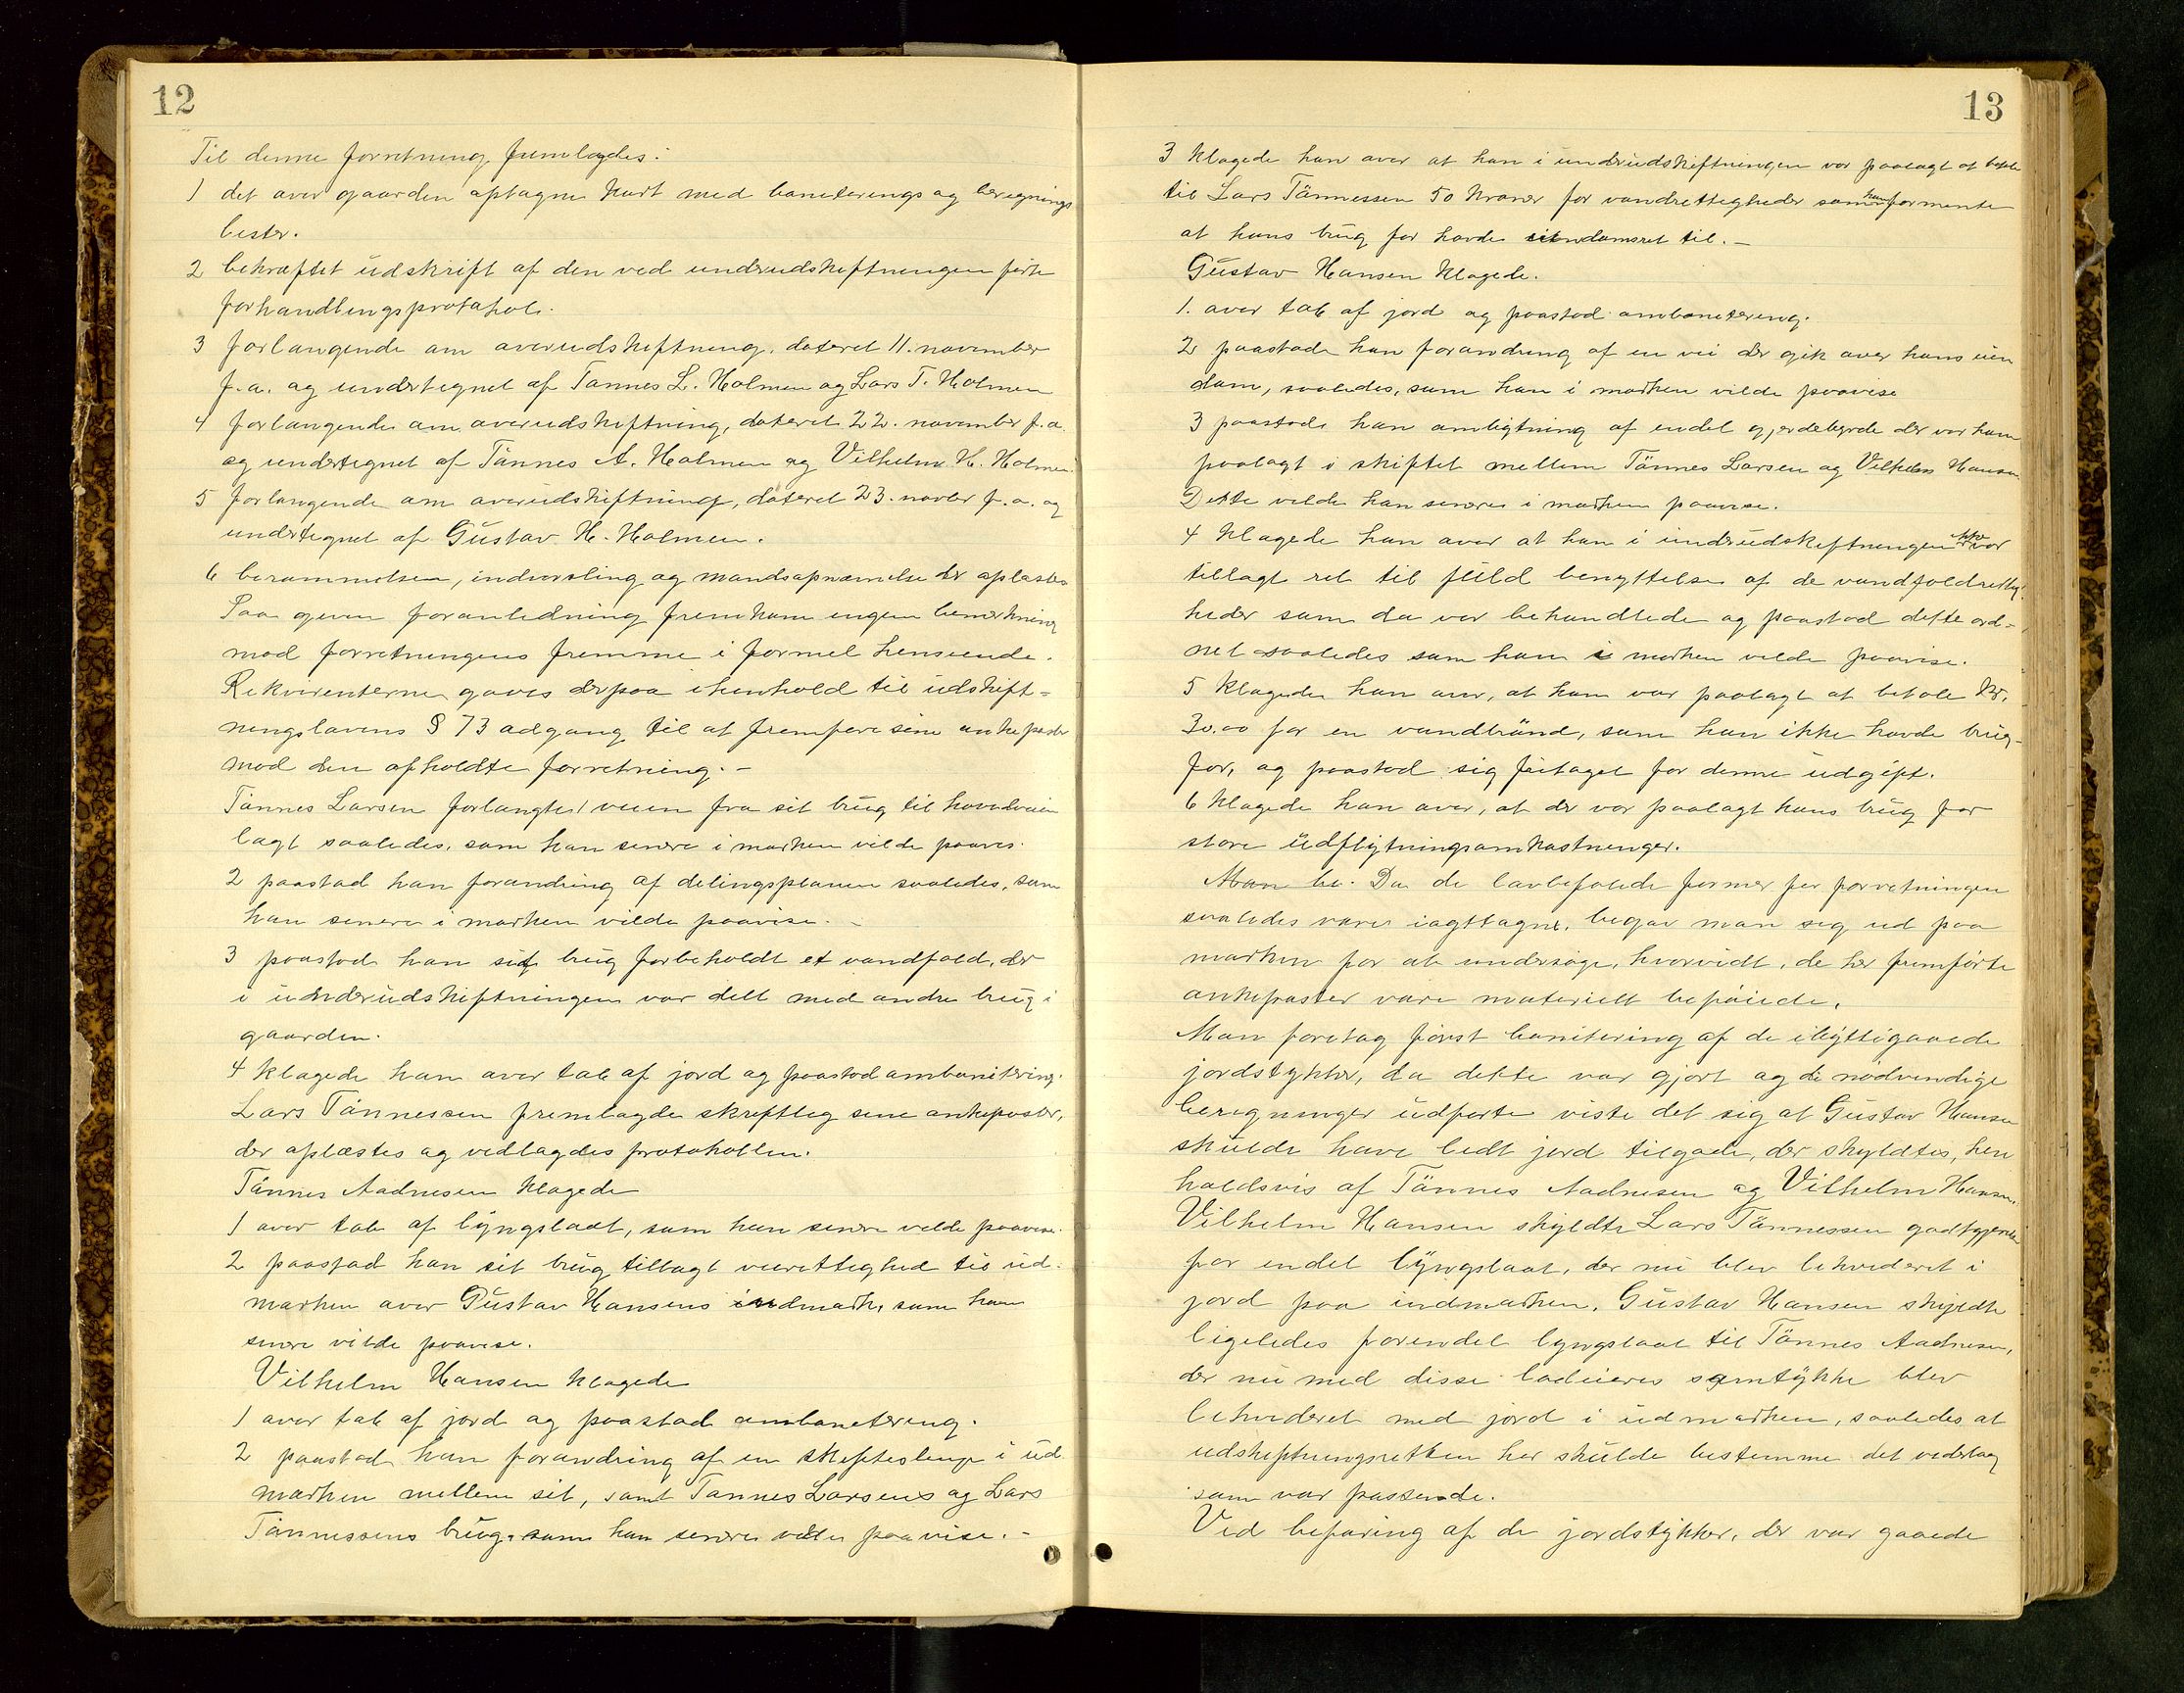 12
Til denne forretning fremlagdes:
1 det over gaarden optagne kart med boniterings og beregnings
lister.
2 bekræftet udskrift af den ved underudskiftningen førte
forhandlingsprotokol.
3 forlangende om overudskiftning, dateret 11. november
f.a. og undertegnet af Tønnes L. Holmen og Lars T. Holmen
4 forlangende om overudskiftning, dateret 22. november f.a.
og undertegnet af Tønnes A. Holmen og Vilhelm H. Holmen.
5 forlangende om overudskiftning, dateret 23. novbr f.a. og
undertegnet af Gustav H. Holmen.
6 berammelsen, indvarsling og mandsopnævnelse der oplæstes
Paa given foranledning fremkom ingen bemerkning
mod forretningens fremme i formel henseende.
Rekvirenterne gaves derpaa i henhold til udskift-
ningslovens § 73 adgang til at fremføre sine ankeposter
mod den afholdte forretning. -
Tønnes Larsen forlangte 1 veien fra sit brug til hovedveien
lagt saaledes, som han senere i marken vilde paavise.
2 paastod han forandring af delingsplanen saaledes, som
han senere i marken vilde paavise. -
3 paastod han sit brug forbeholdt et vandfald, der
i underudskiftningen var delt med andre brug i
gaarden.
4 klagede han over tab af jord og paastod ombonitering.
Lars Tønnessen fremlagde skriftlig sine ankeposter,
der oplæstes og vedlagdes protokollen.
Tønnes Aadnesen klagede
1 over tab af lyngslaat, som han senere vilde paavise.
2 paastod han sit brug tillagt veirettighed til ud-
marken over Gustav Hansens indmark, som han
senere vilde paavise.
Vilhelm Hansen klagede
1 over tab af jord og paastod ombonitering.
2 paastod han forandring af en skifteslinje i ud
marken mellem sit, samt Tønnes Larsens og Lars
Tønnessens brug, som han senere vilde paavise. -
13
3 klagede han over at han i underudskiftningen var paalagt at betale
til Lars Tønnessen 50 kroner for vandrettigheder som han formente
at hans brug før havde eiendomsret til. -
Gustav Hansen klagede.
1. over tab af jord og paastod ombonitering.
2 paastod han forandring af en vei der gik over hans eien
dom, saaledes, som han i marken vilde paavise
3 paastod han omligtning af endel gjerdebyrde der var ham
paalagt i skiftet mellem Tønnes Larsen og Vilhelm Hansen.
Dette vilde han senere i marken paavise.
4 klagede han over at han i underudskiftningen ikke var
tillagt ret til fuld benyttelse af de vandfaldrettig-
heder som da var behandlede og paastod dette ord-
net saaledes som han i marken vilde paavise.
5 klagede han over, at han var paalagt at betale kr.
30.00 for en vandbrønd, som han ikke havde brug
for, og paastod sig fritaget for denne udgift.
6 klagede han over, at der var paalagt hans brug for
store udflytningsomkostninger.
Man be. Da de lovbefalede former for forretningen
saaledes vare iagttagne, begav man sig ud paa
marken for at undersøge, hvorvidt, de her fremførte
ankeposter vare materielt beføiede.
Man foretog først bonitering af de ibyttigaaede
jordstykker, da dette var gjort og de nødvendige
beregninger udførte viste det sig at Gustav Hansen
skulde have lidt jord tilgode, der skyldtes, hen
holdsvis af Tønnes Aadnesen og Vilhelm Hansen.
Vilhelm Hansen skyldte Lars Tønnessen godtgjørelse
for endel lyngslaat, der nu blev likvideret i
jord paa indmarken. Gustav Hansen skyldte
ligeledes forendel lyngslaat til Tønnes Aadnesen,
der nu med disse lodeieres samtykke blev
likvideret med jord i udmarken, saaledes at
udskiftningsretten her skulde bestemme det vederlag
som var passende.
Ved befaring af de jordstykker, der var gaaede